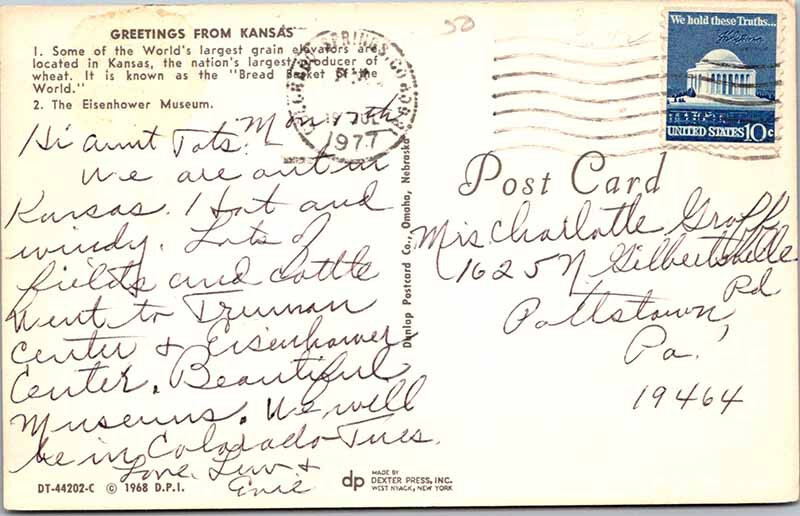 GREETINGS FROM KANSAS
1. Some of the World's largest grain elevators are
located in Kansas, the nation's largest producer of
wheat. It is known as the "Bread Basket of the
World."
2. The Eisenhower Museum.
Mon 18th
Hi Aunt Tots.
We are out in
Kansas. Hot and
windy. Lots of
fields and cattle
Went to Truman
Center & Eisenhower
Center. Beautiful
Museums. We will
be in Colorado Tues.
Love, Luv &
Evie
DT-44202-C © 1968 D.P.I.
Dunlap Postcard Co., Omaha, Nebraska
dp MADE BY
DEXTER PRESS, INC.
WEST NYACK, NEW YORK
50
SPRINGS, CO
1977
We hold these Truths...
UNITED STATES 10c
Post Card
Mrs Charlotte Groff
1625 N. Gilbertsville
Rd
Pottstown,
Pa.
19464